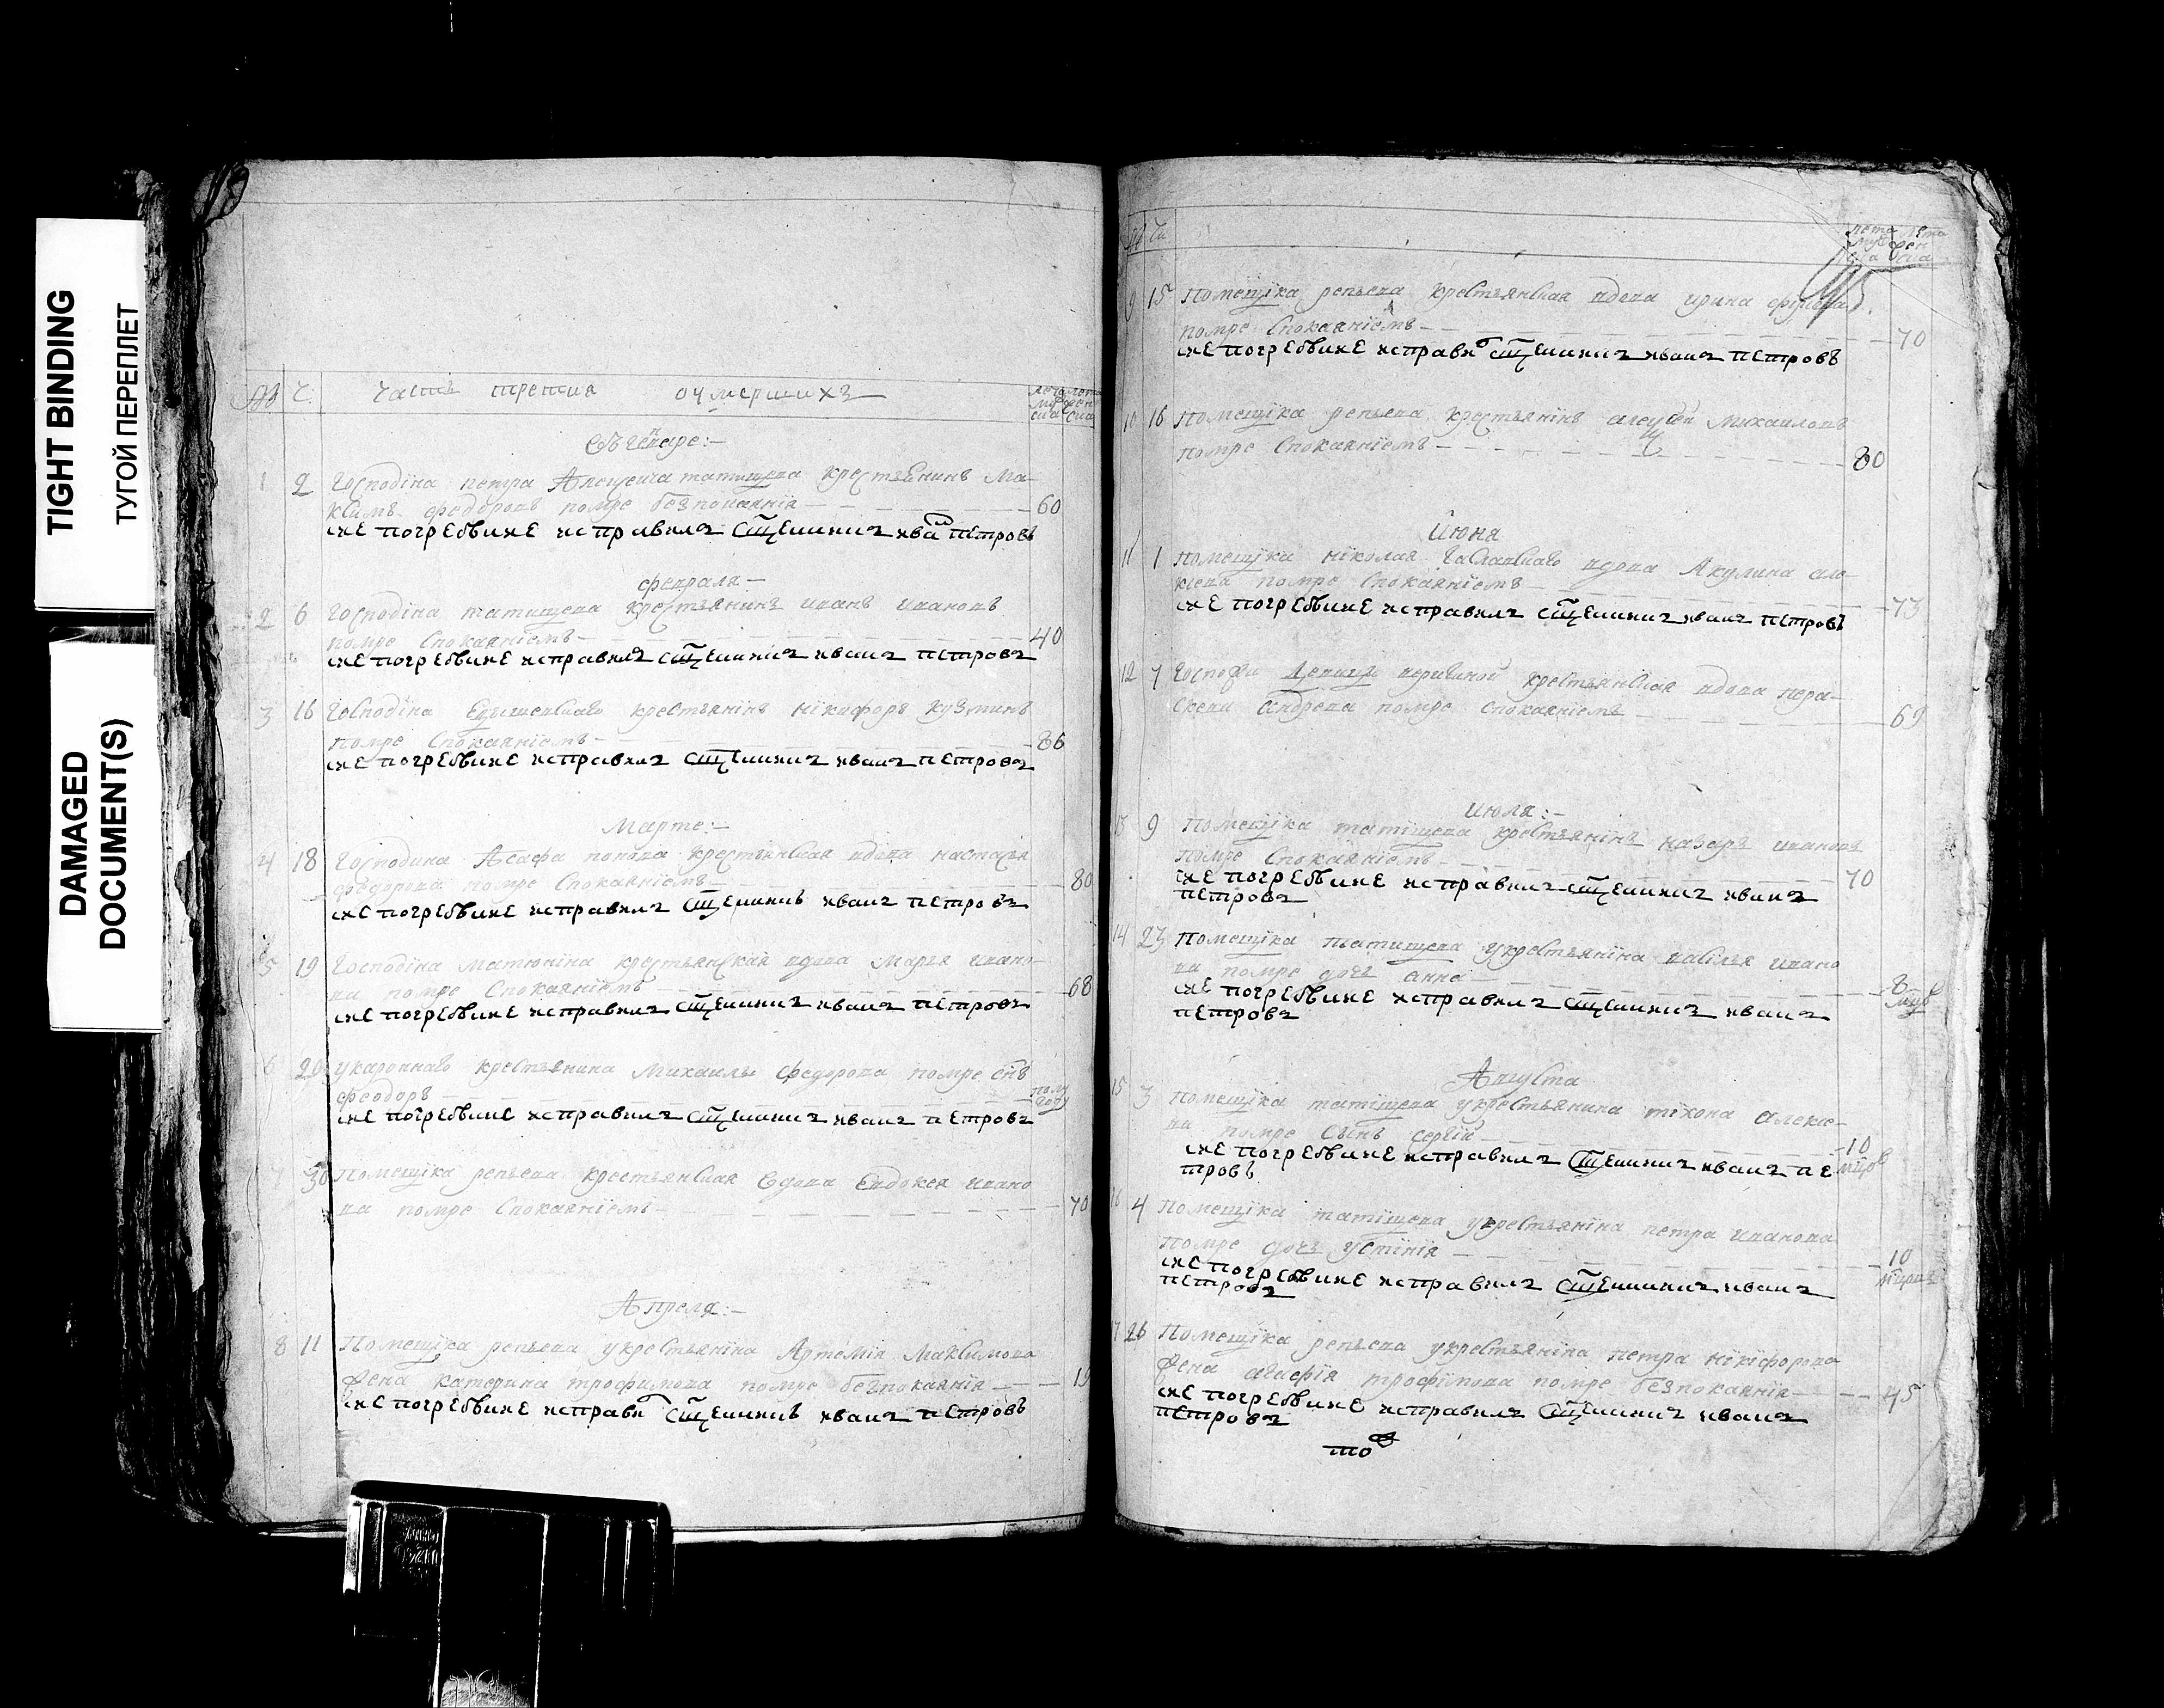 TIGHT BINDING
ТУГОЙ ПЕРЕПЛЕТ
DAMAGED
DOCUMENT(S)
№ Ч. Часть третия оумершихъ
лета муж. лета жен.
1 2 Господина петра Алеѯеича татищева крестьянинъ Ма-
ксимъ федоровъ помре безпокаяния 60
сие погребение исправилъ священникъ иванъ петровъ
февраля
2 6 Господина татищева крестьянинъ иванъ ивановъ
помре Спокаяниемъ 40
сие погребение исправилъ священникъ иванъ петровъ
3 16 Господина крестьянинъ никифоръ кузминъ
помре Спокаяниемъ 86
сие погребение исправилъ священникъ иванъ петровъ
Марте:
4 18 Господина Асафа попова крестьянская вдова настасья
федорова помре Спокаяниемъ 80
сие погребение исправилъ священникъ иванъ петровъ
5 19 Господина матюнина крестьянская вдова марья ивано-
ва помре Спокаяниемъ 68
сие погребение исправилъ священникъ иванъ петровъ
6 20 крестьянина Михаилы федорова помре снъ
феодоръ полу году
сие погребение исправилъ священникъ иванъ петровъ
7 30 Помещика репьева крестьянская вдова Евдокея ивано
ва помре Спокаяниемъ 70
Апреля:
8 11 Помещика репьева укрестьянина Артемия Максимова
жена катерина трофимова помре безпокаяния
сие погребение исправилъ священникъ иванъ петровъ
9 15 Помещика репьева крестьянская вдова ирина
помре Спокаяниемъ 70
сие погребение исправилъ священникъ иванъ петровъ
10 16 Помещика репьева крестьянинъ Михаиловъ
помре Спокаяниемъ 80
Июня
11 1 помещика николая вдова Акулина але-
ѯиева помре Спокаяниемъ 73
сие погребение исправилъ священникъ иванъ петровъ
12 7 крестьянская вдова пера-
скеви андреева помре Спокаяниемъ 69
июля:
13 9 Помещика татищева крестьянинъ назаръ ивановъ
помре Спокаяниемъ 70
сие погребение исправилъ священникъ иванъ
петровъ
14 23 Помещика татищева укрестьянина василья ивано
ва помре дочь анна 8
сие погребение исправилъ священникъ иванъ
петровъ
Августа
15 3 Помещика татищева укрестьянина тихона алеѯие-
ва помре сынъ сергий 10
сие погребение исправилъ священникъ иванъ пе
тровъ
16 4 Помещика татищева укрестьянина петра иванова
помре дочь устиния 10
сие погребение исправилъ священникъ иванъ
петровъ
17 26 Помещика репьева укрестьянина петра никифорова
жена агафия трофимова помре безпокаяния 45
сие погребение исправилъ священникъ иванъ
петровъ